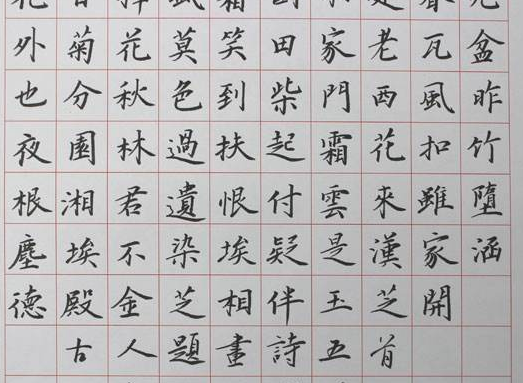 盆昨竹墮涵
瓦風扣雖家開
老西花來漢芝首
家門霜雲是玉五
田柴起付疑伴詩
笑到扶恨埃相畫
莫色過遺染芝題
花秋林君不金人
菊分園湘埃殿古
外也夜根塵德